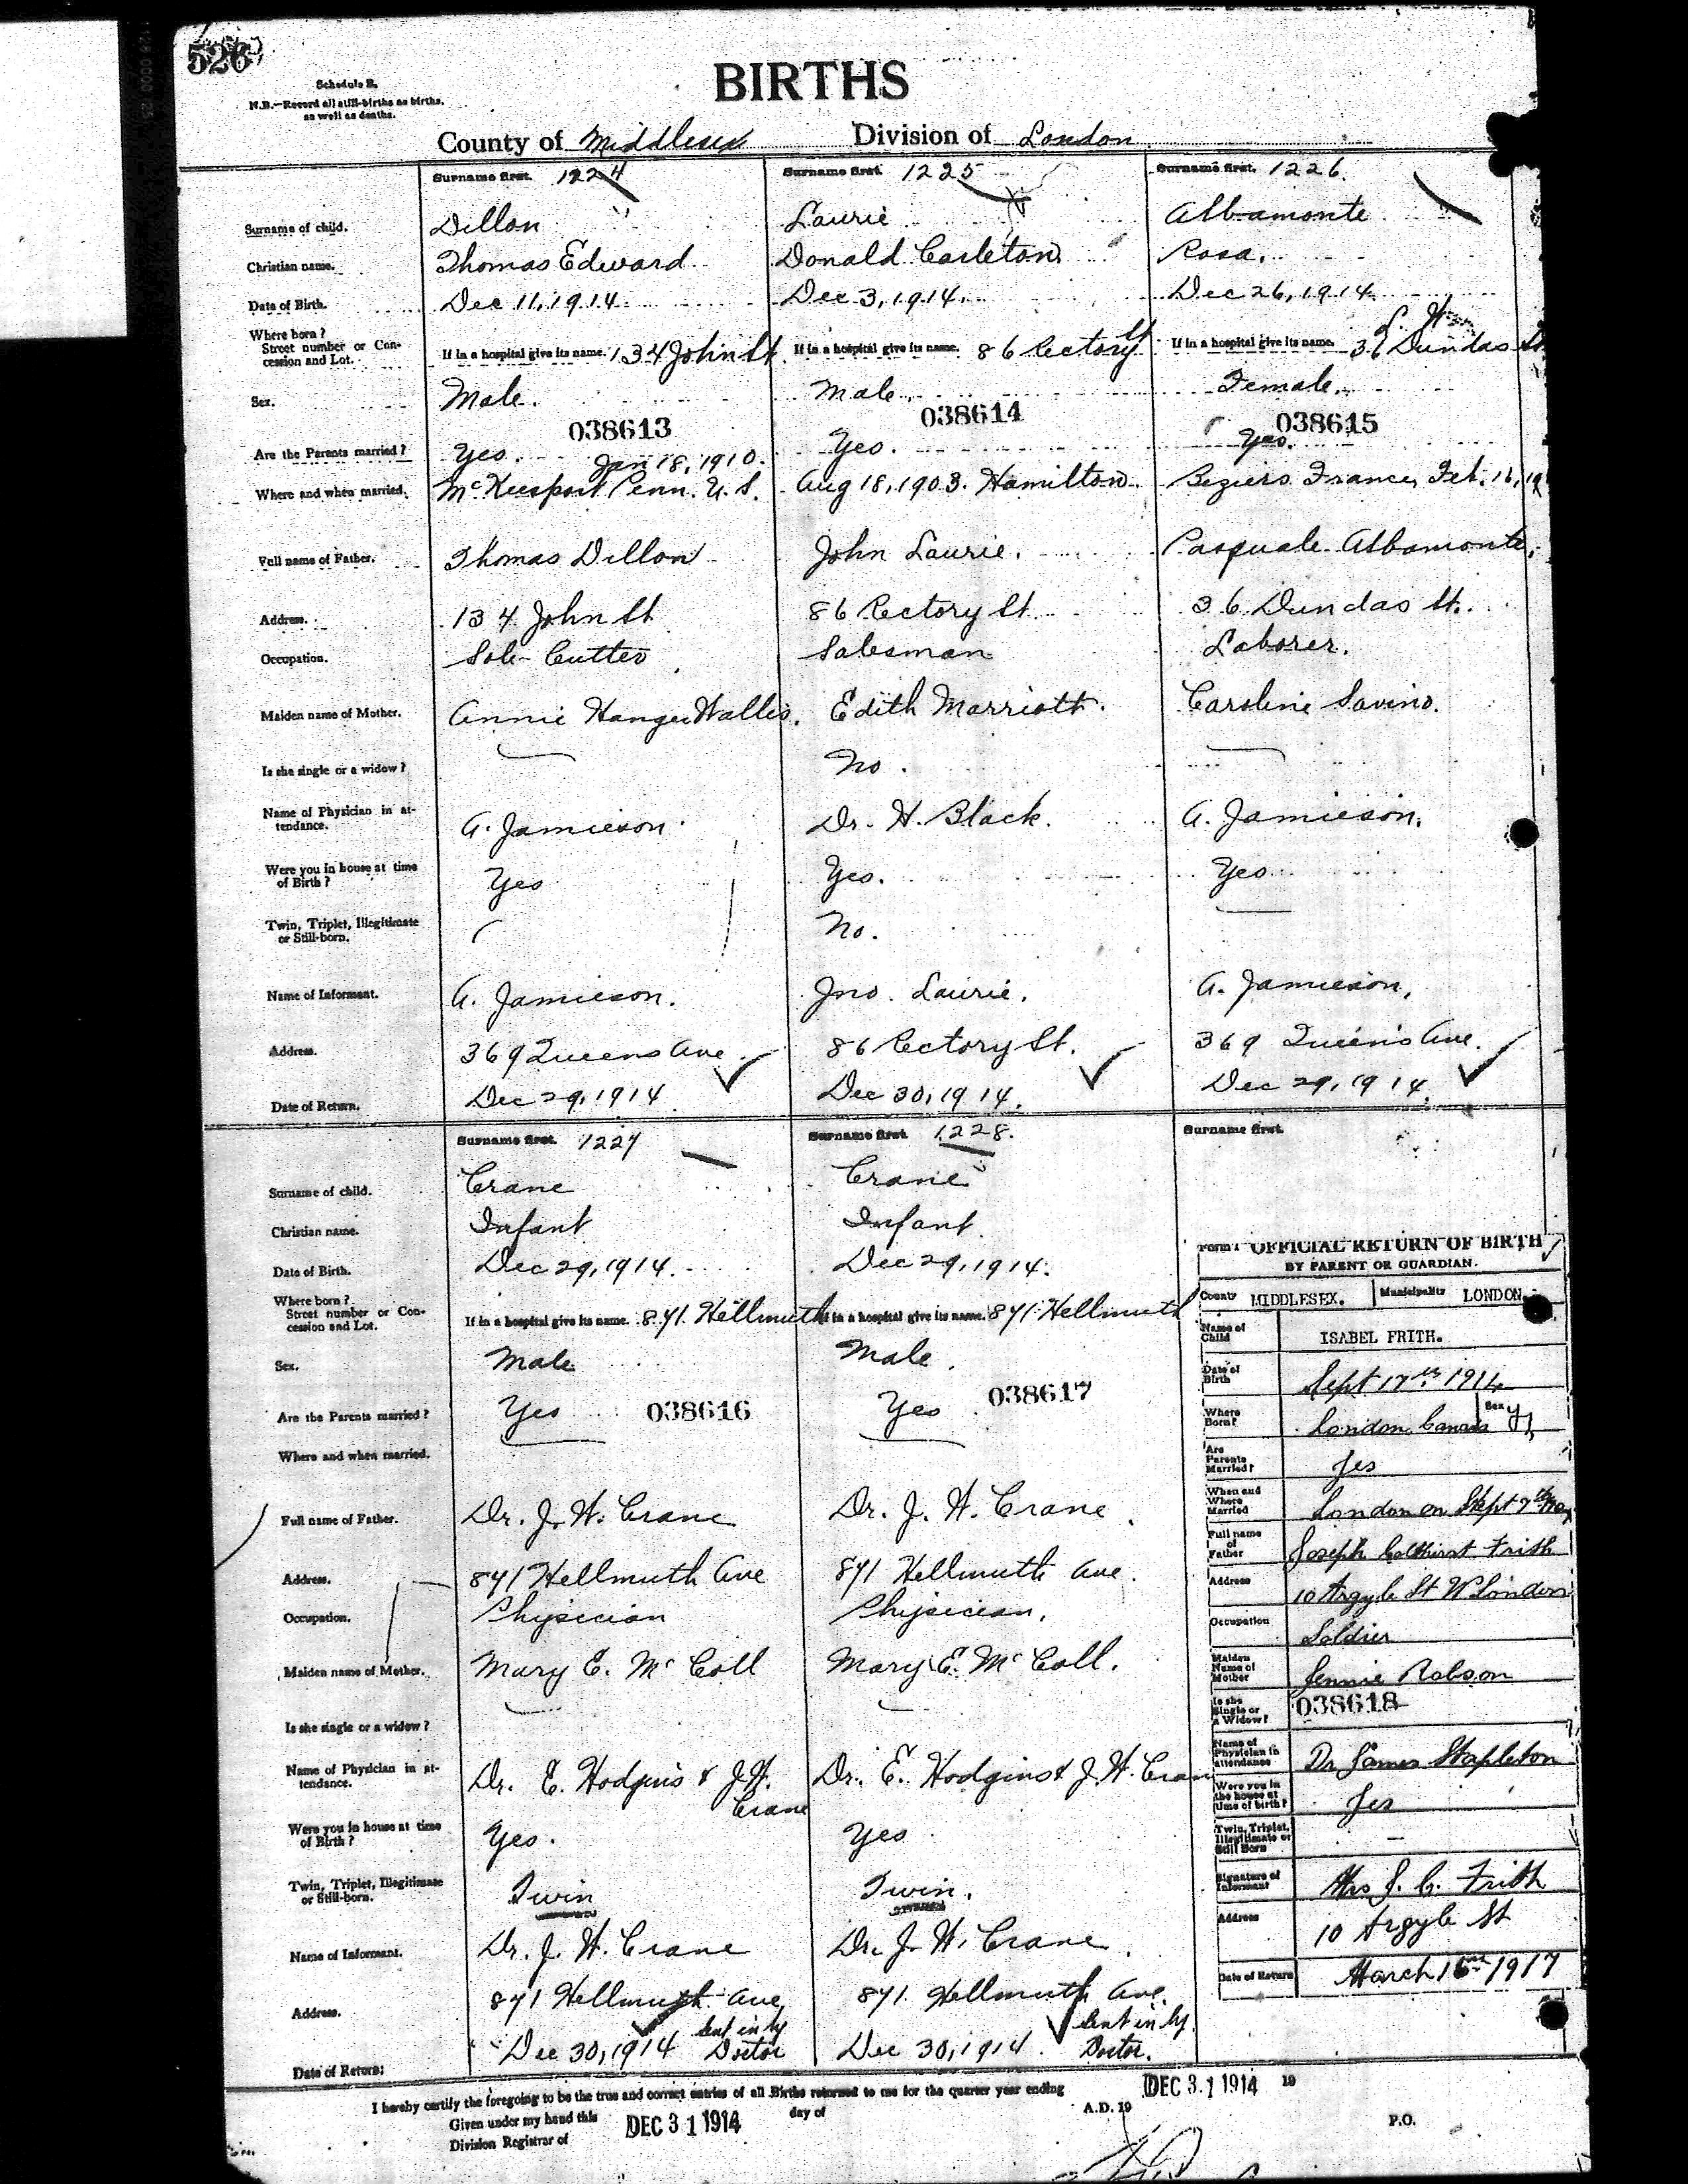 526
Schedule B.
N.B.—Record all still-births as births, as well as deaths.
BIRTHS
County of Middlesex Division of London
Surname first. 1224 Surname first. 1225 Surname first. 1226.
Surname of child. Dillon Laurie Albamonte
Christian name. Thomas Edward Donald Carleton Rosa.
Date of Birth. Dec 11, 1914. Dec 3, 1914. Dec 26, 1914.
Where born? Street number or Concession and Lot. If in a hospital give its name. 134 John St. If in a hospital give its name. 86 Rectory St If in a hospital give its name. 36 Dundas St
Sex. Male. Male. Female.
038613 038614 038615
Are the Parents married? Yes. Yes. Yes.
Jan 18, 1910.
Where and when married. McKeesport Penn. U.S. Aug 18, 1903. Hamilton Beziers France, Feb. 16, 19
Full name of Father. Thomas Dillon John Laurie. Pasquale Albamonte.
Address. 134 John St 86 Rectory St 36 Dundas St.
Occupation. Sole-Cutter Salesman Laborer.
Maiden name of Mother. Annie Hanger Wallis. Edith Marriott. Caroline Savino.
Is she single or a widow? No.
Name of Physician in attendance. A. Jamieson Dr. H. Black. A. Jamieson.
Were you in house at time of Birth? Yes Yes. Yes
Twin, Triplet, Illegitimate or Still-born. No.
Name of Informant. A. Jamieson. Jno. Laurie. A. Jamieson.
Address. 369 Queens Ave. 86 Rectory St. 369 Queen's Ave.
Date of Return. Dec 29, 1914 Dec 30, 1914. Dec 29, 1914.
Surname first. 1227 Surname first. 1228. Surname first.
Surname of child. Crane Crane
Christian name. Infant Infant
Date of Birth. Dec 29, 1914. Dec 29, 1914.
Where born? Street number or Concession and Lot. If in a hospital give its name. 871 Hellmuth If in a hospital give its name. 871 Hellmuth
Sex. Male Male.
Are the Parents married? Yes 038616 Yes 038617
Where and when married.
Full name of Father. Dr. J. W. Crane Dr. J. W. Crane
Address. 871 Hellmuth Ave 871 Hellmuth Ave.
Occupation. Physician Physician.
Maiden name of Mother. Mary E. McColl Mary E. McColl.
Is she single or a widow?
Name of Physician in attendance. Dr. E. Hodgins & J. W. Crane Dr. E. Hodgins & J. W. Crane
Were you in house at time of Birth? Yes. Yes
Twin, Triplet, Illegitimate or Still-born. Twin Twin.
Name of Informant. Dr. J. W. Crane Dr. J. W. Crane.
Address. 871 Hellmuth Ave 871 Hellmuth Ave.
Date of Return: Dec 30, 1914 Sent in by Doctor Dec 30, 1914. Sent in by Doctor.
Form 1 OFFICIAL RETURN OF BIRTH
BY PARENT OR GUARDIAN.
County MIDDLESEX. Municipality LONDON.
Name of Child ISABEL FRITH.
Date of Birth Sept 17th 1914
Where Born? London Canada Sex
Are Parents Married? Yes
When and Where Married London on Sept 7th
Full name of Father Joseph Frith
Address 10 Argyle St W London
Occupation Soldier
Maiden Name of Mother Jennie Robson
Is she Single or a Widow? 038618
Name of Physician in attendance Dr James Stapleton
Were you in the house at time of birth? Yes
Twin, Triplet, Illegitimate or Still Born —
Signature of Informant Mrs J. C. Frith
Address 10 Argyle St
Date of Return March 1917
I hereby certify the foregoing to be the true and correct entries of all Births returned to me for the quarter year ending DEC 31 1914 19
Given under my hand this DEC 31 1914 day of A.D. 19
Division Registrar of P.O.